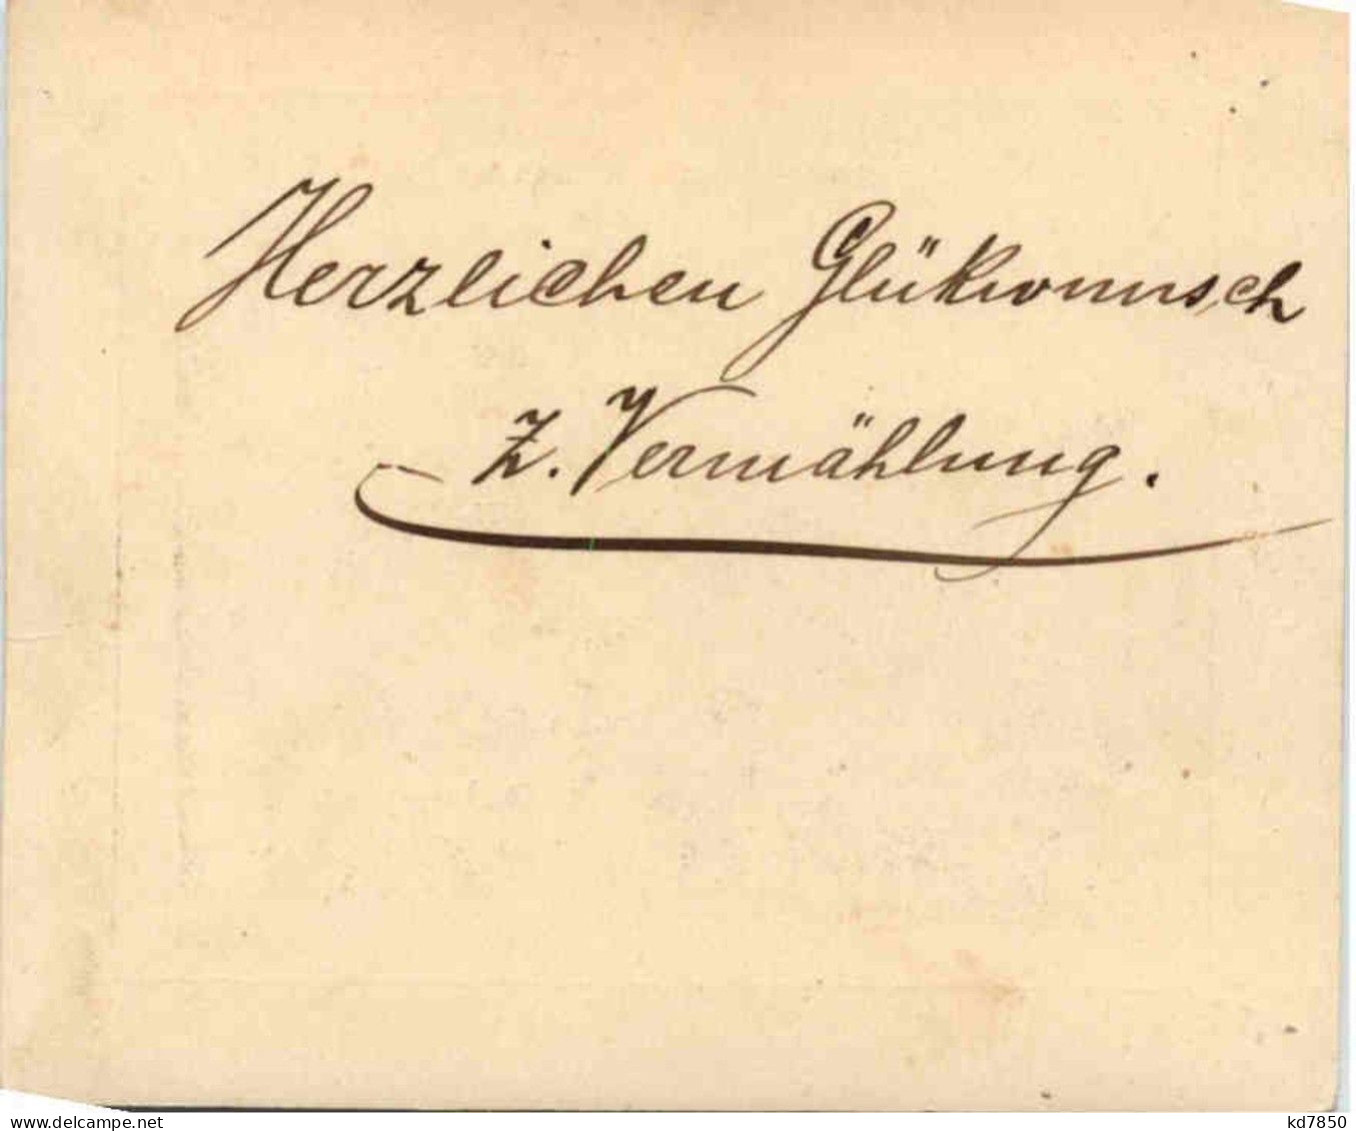 Herzlichen Glükwunsch
z. Vermählung.
delcampe.net
kd7850